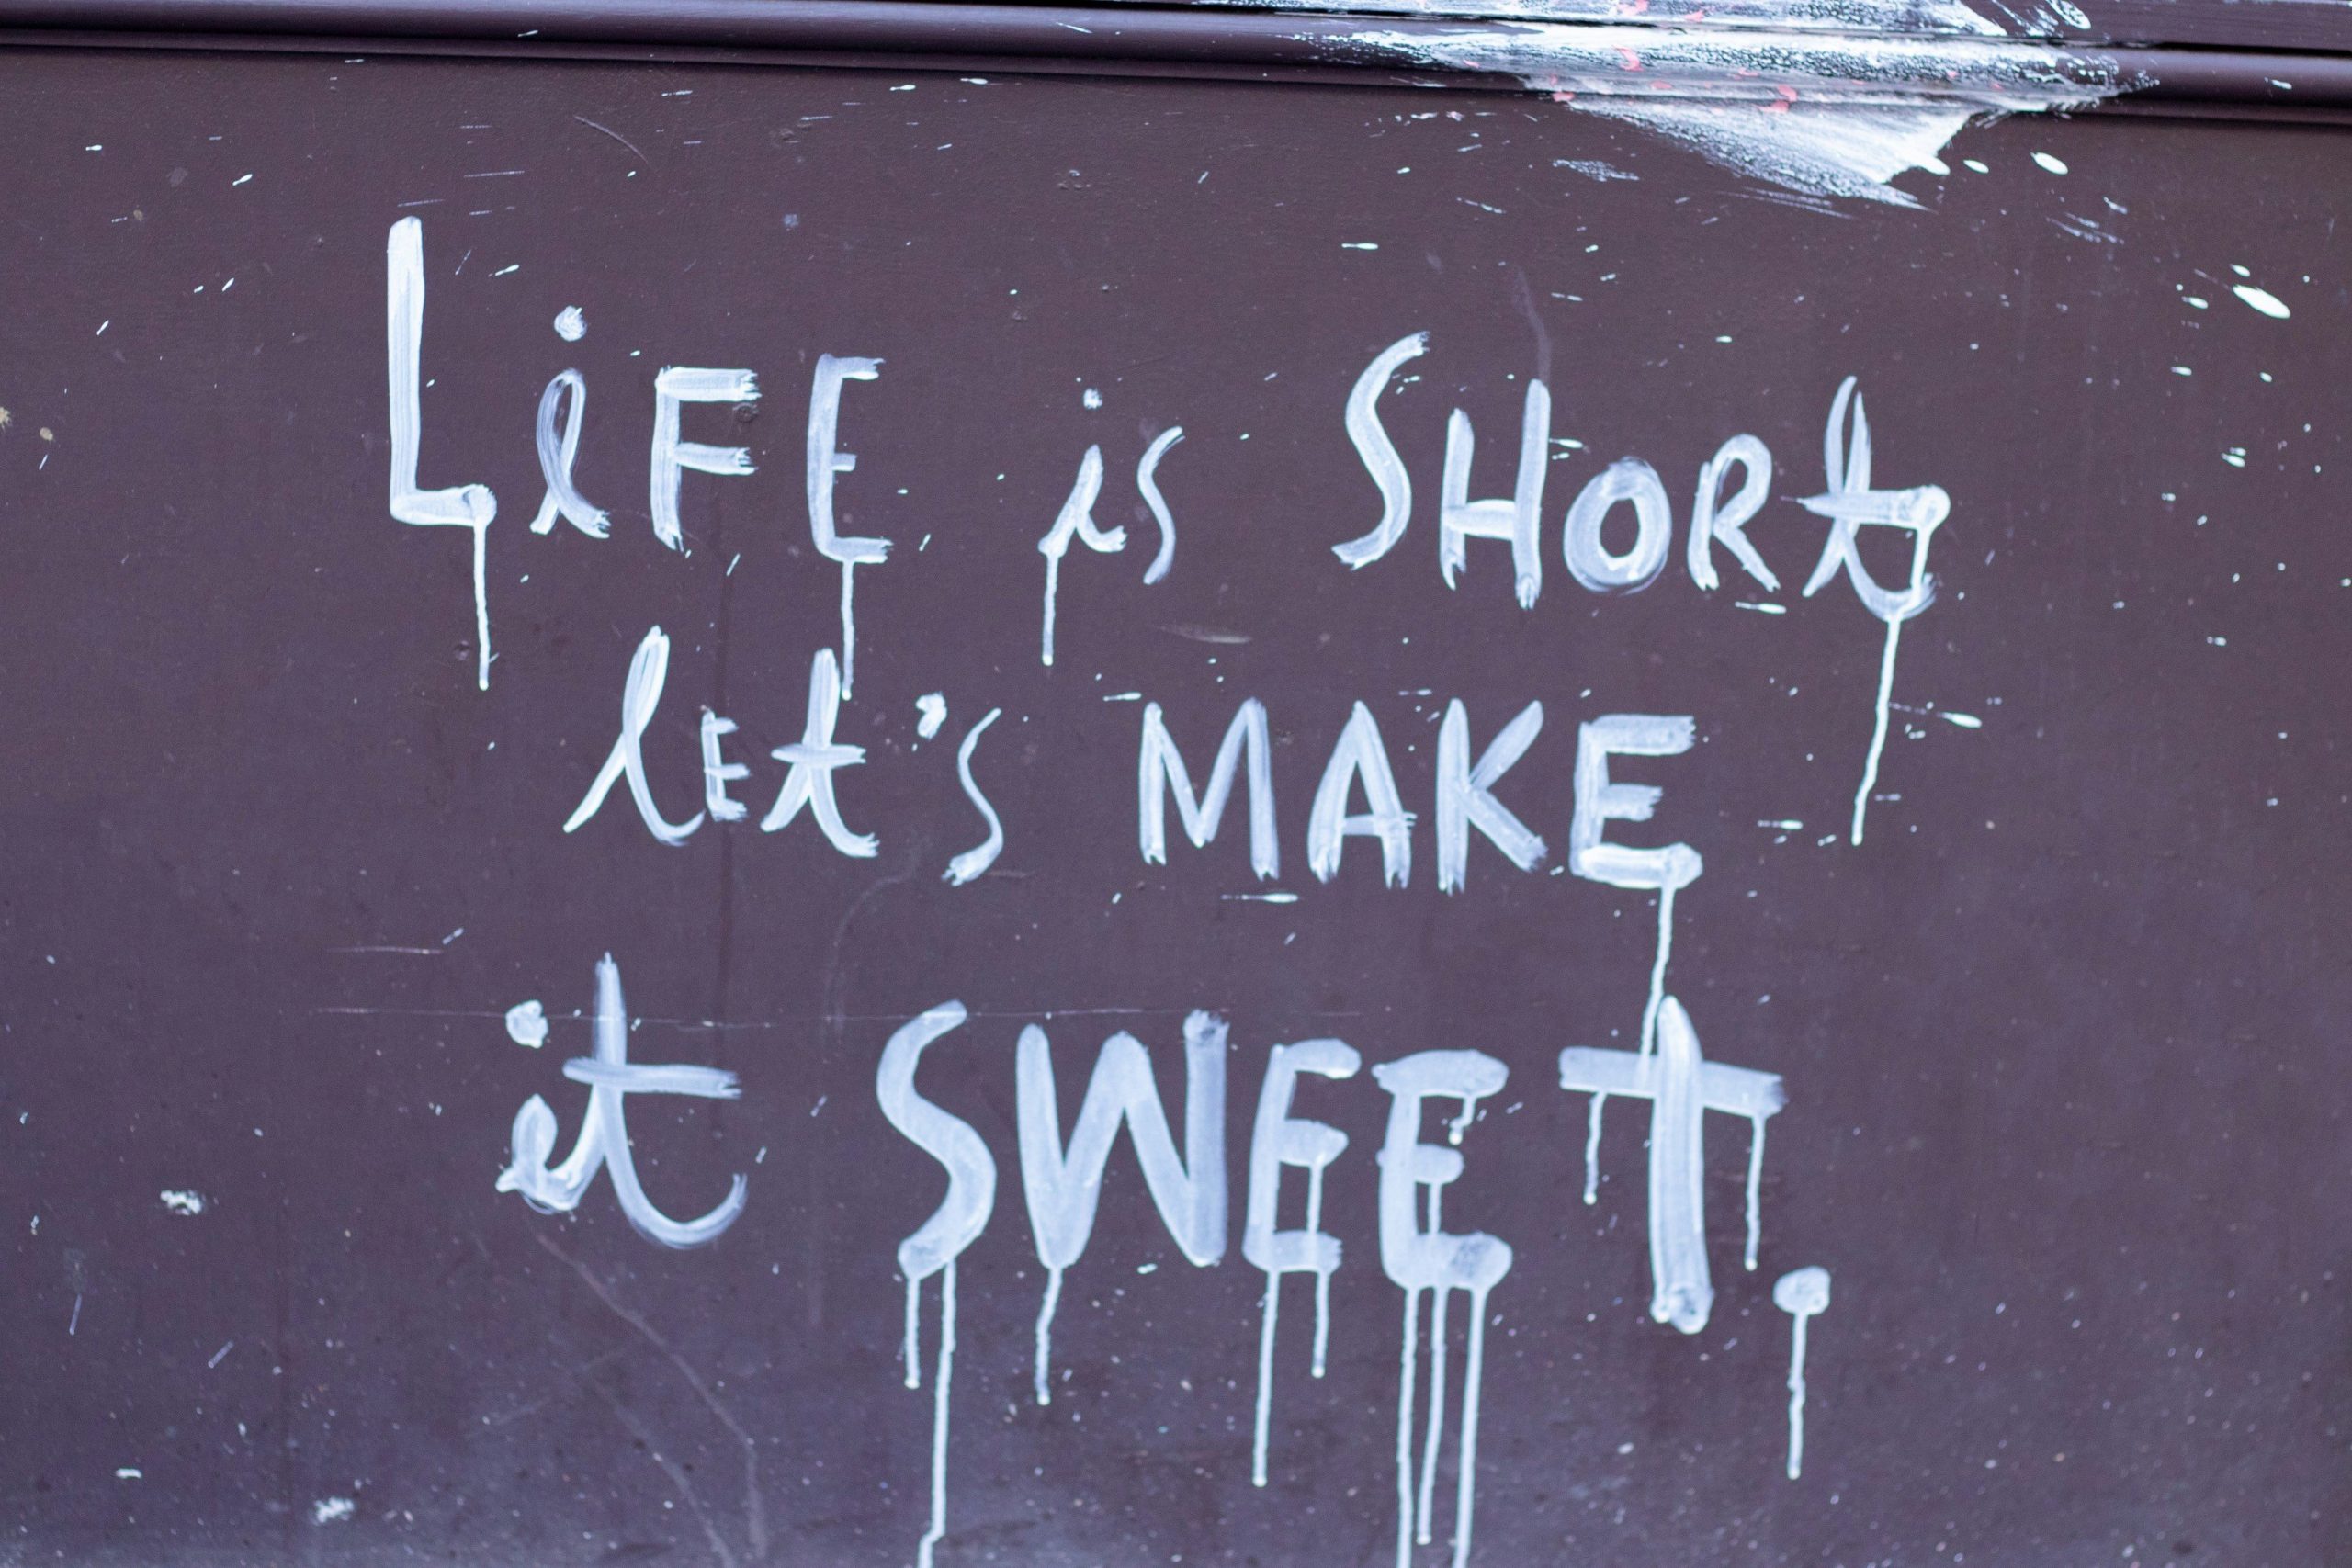 LiFE is SHORt
lEt's MAKE
it SWEEt.